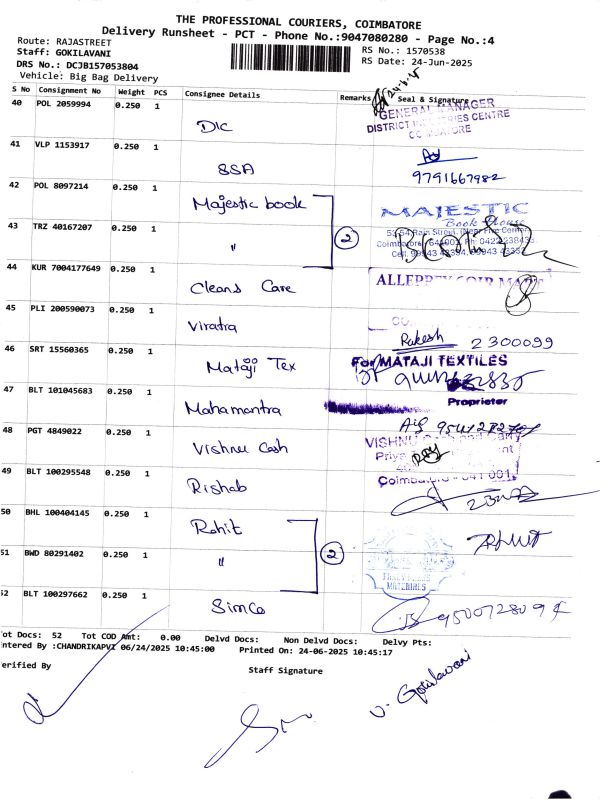 THE PROFESSIONAL COURIERS, COIMBATORE
Delivery Runsheet - PCT - Phone No.:9047080280 - Page No.:4
Route: RAJASTREET
RS No.: 1570538
Staff: GOKILAVANI
RS Date: 24-Jun-2025
DRS No.: DCJB157053804
Vehicle: Big Bag Delivery
S No Consignment No Weight PCS Consignee Details Remarks Seal & Signature
40 POL 2059994 0.250 1 DIC
GENERAL MANAGER
DISTRICT INDUSTRIES CENTRE
COIMBATORE
41 VLP 1153917 0.250 1 SSA
9791667982
42 POL 8097214 0.250 1 Majestic book
MAJESTIC
Book House
43 TRZ 40167207 0.250 1 "
2
44 KUR 7004177649 0.250 1 Cleans Care
ALLEPPEY COIR MART
45 PLI 200590073 0.250 1 Viratra
Rakesh 2300099
46 SRT 15560365 0.250 1 Mataji Tex
For MATAJI TEXTILES
Proprietor
47 BLT 101045683 0.250 1 Mahamantra
48 PGT 4849022 0.250 1 Vishnu Cash
VISHNU Cash and Carry
49 BLT 100295548 0.250 1 Rishab
50 BHL 100404145 0.250 1 Rohit
51 BWD 80291402 0.250 1 "
2
52 BLT 100297662 0.250 1 Simco
Tot Docs: 52 Tot COD Amt: 0.00 Delvd Docs: Non Delvd Docs: Delvy Pts:
Entered By :CHANDRIKAPVI 06/24/2025 10:45:00 Printed On: 24-06-2025 10:45:17
Verified By
Staff Signature
V. Gokilavani